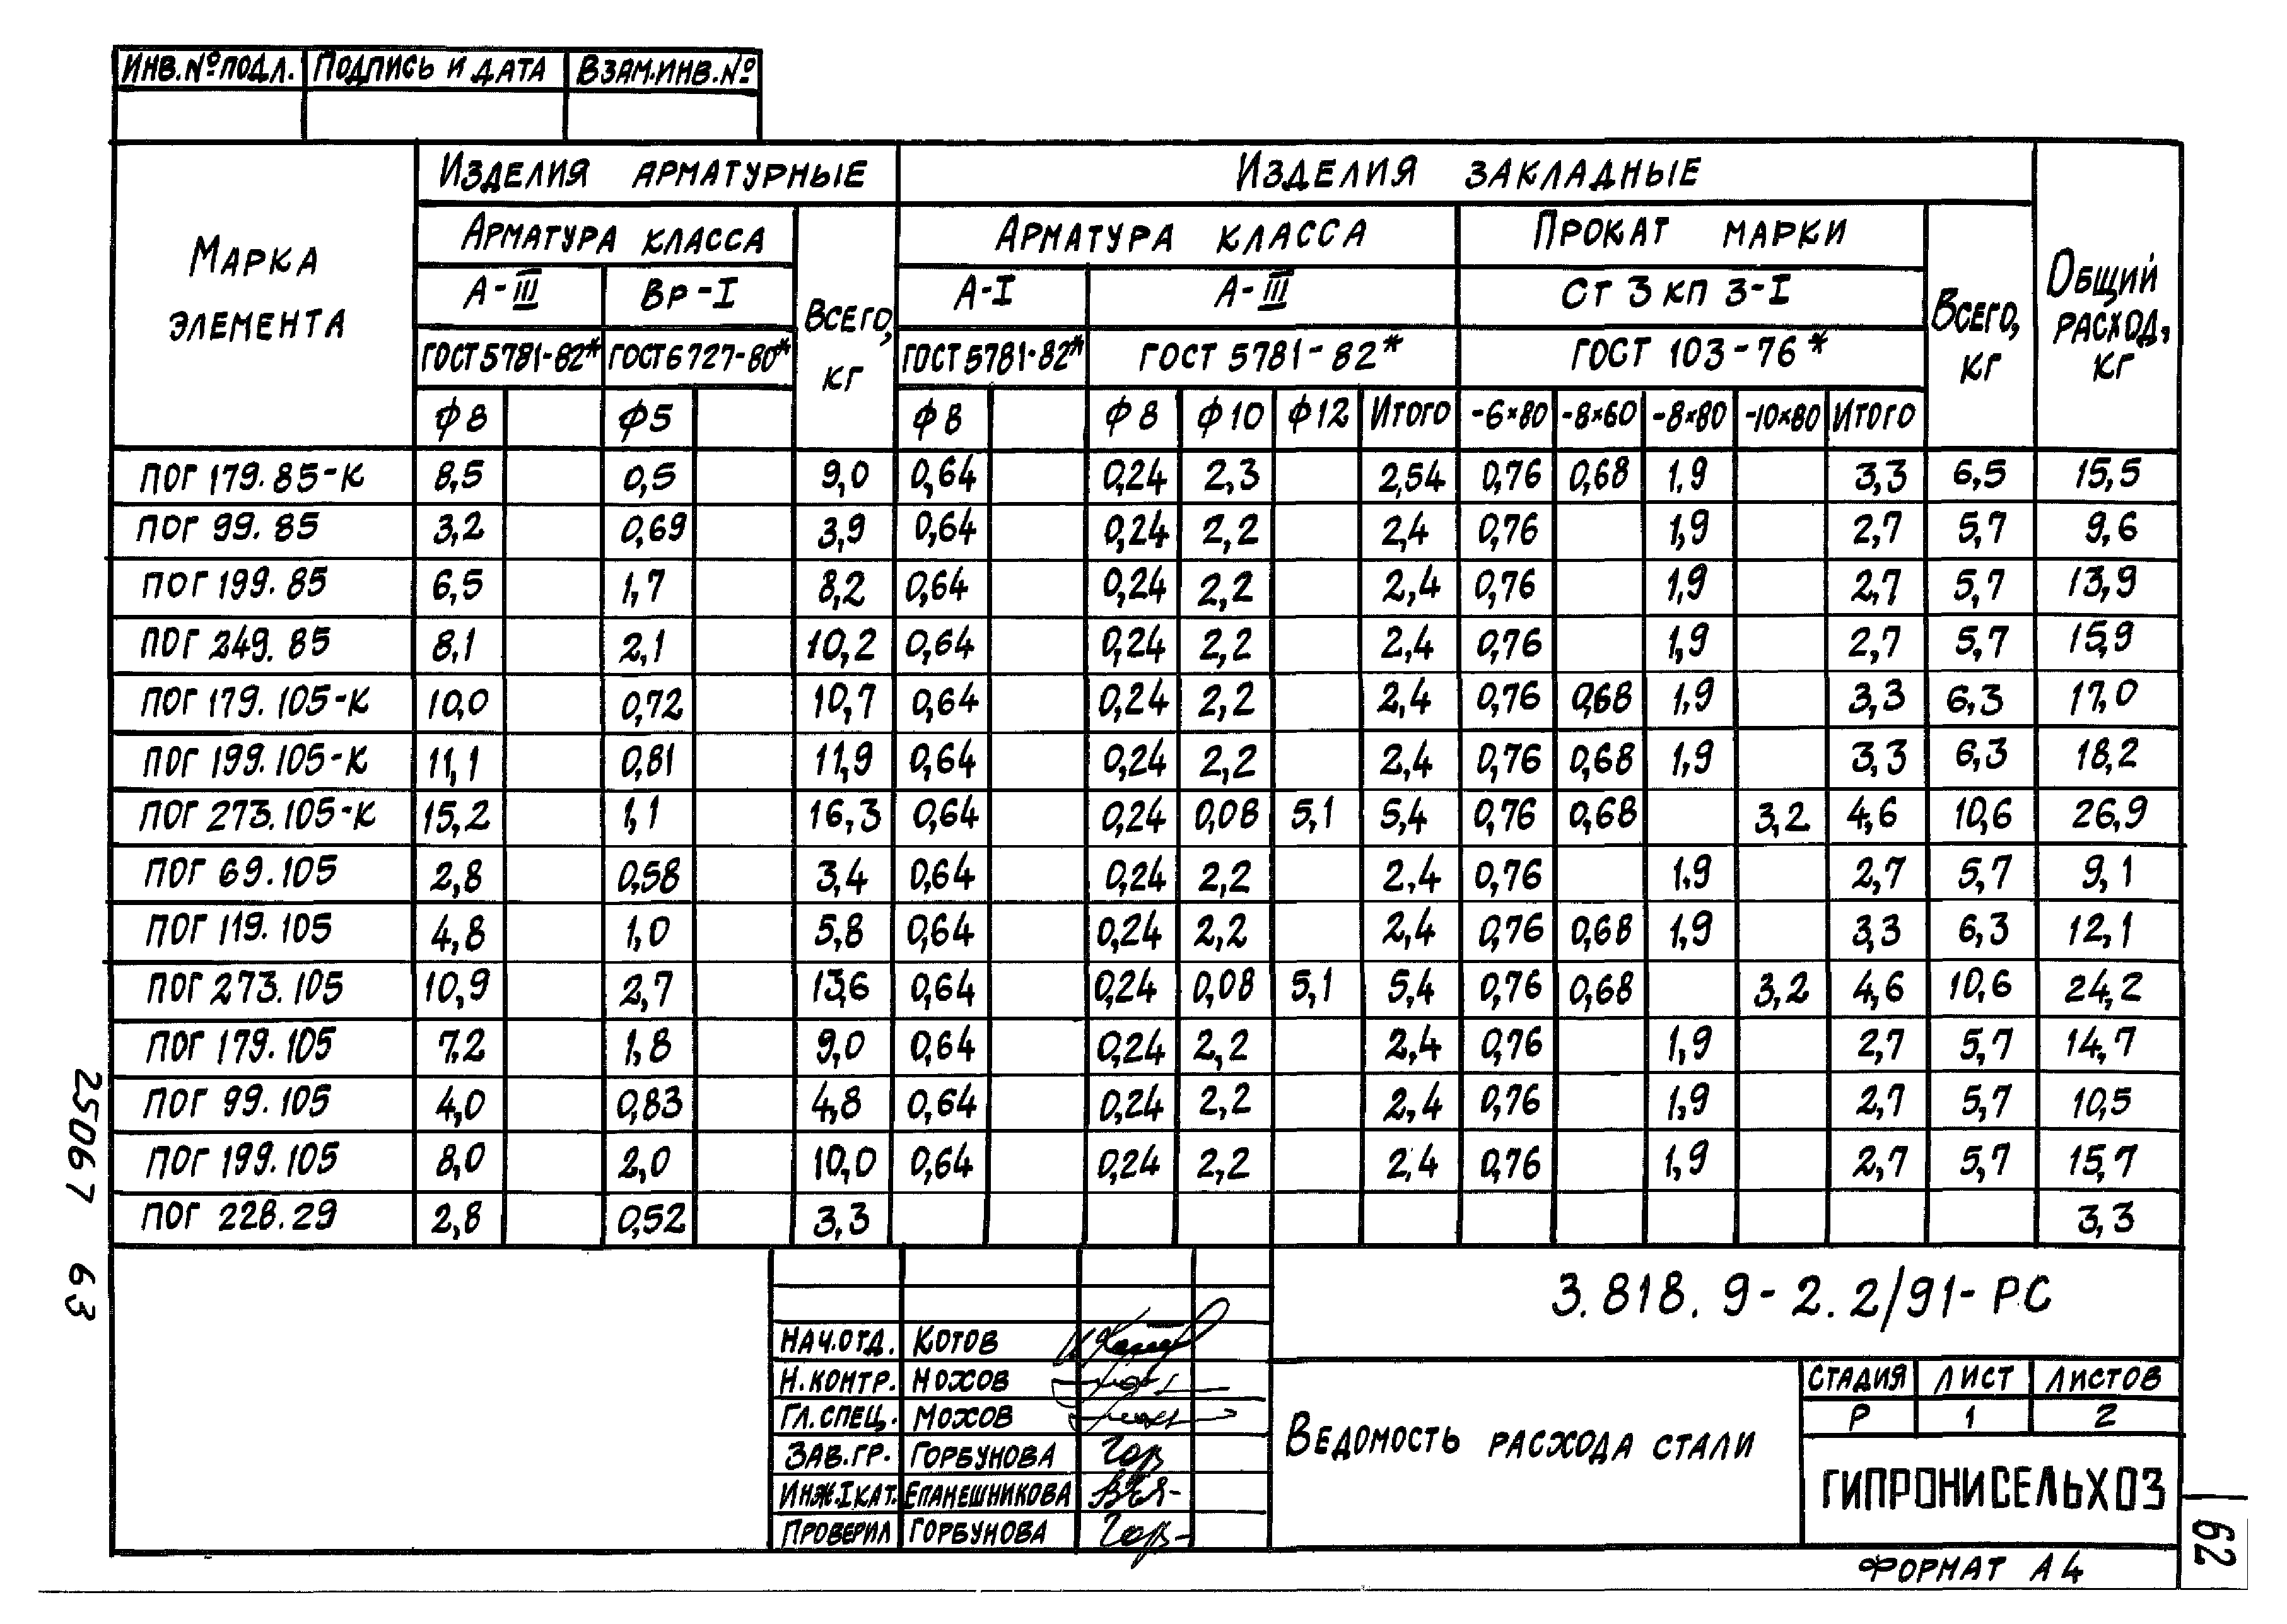 Инв.№ подл. Подпись и дата Взам.инв.№
Марка элемента Изделия арматурные Изделия закладные Общий расход, кг
Арматура класса Всего, кг Арматура класса Прокат марки Всего, кг
А-III Вр-I А-I А-III Ст 3 кп 3-I
ГОСТ 5781-82* ГОСТ 6727-80* ГОСТ 5781-82* ГОСТ 5781-82* ГОСТ 103-76*
ф8 ф5 ф8 ф8 ф10 ф12 Итого -6×80 -8×60 -8×80 -10×80 Итого
ПОГ 179.85-К 8,5 0,5 9,0 0,64 0,24 2,3 2,54 0,76 0,68 1,9 3,3 6,5 15,5
ПОГ 99.85 3,2 0,69 3,9 0,64 0,24 2,2 2,4 0,76 1,9 2,7 5,7 9,6
ПОГ 199.85 6,5 1,7 8,2 0,64 0,24 2,2 2,4 0,76 1,9 2,7 5,7 13,9
ПОГ 249.85 8,1 2,1 10,2 0,64 0,24 2,2 2,4 0,76 1,9 2,7 5,7 15,9
ПОГ 179.105-К 10,0 0,72 10,7 0,64 0,24 2,2 2,4 0,76 0,68 1,9 3,3 6,3 17,0
ПОГ 199.105-К 11,1 0,81 11,9 0,64 0,24 2,2 2,4 0,76 0,68 1,9 3,3 6,3 18,2
ПОГ 273.105-К 15,2 1,1 16,3 0,64 0,24 0,08 5,1 5,4 0,76 0,68 3,2 4,6 10,6 26,9
ПОГ 69.105 2,8 0,58 3,4 0,64 0,24 2,2 2,4 0,76 1,9 2,7 5,7 9,1
ПОГ 119.105 4,8 1,0 5,8 0,64 0,24 2,2 2,4 0,76 0,68 1,9 3,3 6,3 12,1
ПОГ 273.105 10,9 2,7 13,6 0,64 0,24 0,08 5,1 5,4 0,76 0,68 3,2 4,6 10,6 24,2
ПОГ 179.105 7,2 1,8 9,0 0,64 0,24 2,2 2,4 0,76 1,9 2,7 5,7 14,7
ПОГ 99.105 4,0 0,83 4,8 0,64 0,24 2,2 2,4 0,76 1,9 2,7 5,7 10,5
ПОГ 199.105 8,0 2,0 10,0 0,64 0,24 2,2 2,4 0,76 1,9 2,7 5,7 15,7
ПОГ 228.29 2,8 0,52 3,3 3,3
25067 63
3.818.9-2.2/91-РС
Нач.отд. Котов
Н.контр. Мохов
Гл.спец. Мохов
Зав.гр. Горбунова
Инж.I кат. Епанешникова
Проверил Горбунова
Ведомость расхода стали
Стадия Лист Листов
Р 1 2
ГИПРОНИСЕЛЬХОЗ
Формат А4
62